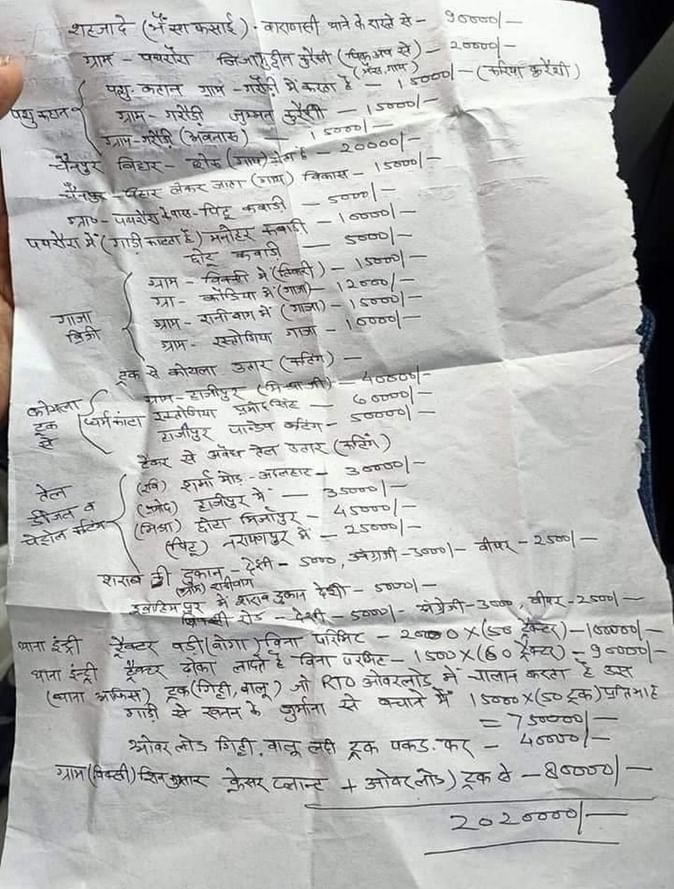 शहजादे (भैंसा कसाई) - वाराणसी थाने के रास्ते से - 90000/-
ग्राम - पथरौरा जियाउद्दीन कुरैशी (पिकअप से) - 20000/-
(भैंस, गाय)
पशु कटान
पशु-कटान ग्राम - गरौड़ी में करता है - 15000/- (करिया कुरैशी)
ग्राम - गरौड़ी जुम्मन कुरैशी - 15000/-
ग्राम-गरौड़ी - 15000/-
चैनपुर बिहार - (गाय) - 20000/-
लेकर जाता (गाय) विकास - 15000/-
ग्रा० - पथरौरा के पास - पिंटू कबाड़ी - 5000/-
पथरौरा में (गाड़ी काटता है) मनोहर कबाड़ी - 10000/-
छोटू कबाड़ी - 5000/-
गाजा बिक्री
ग्राम - बिक्सी में - 15000/-
ग्रा - कोडिया में (गाजा) - 12000/-
ग्राम - रानीबाग में (गाजा) - 15000/-
ग्राम - रस्तोगिया गाजा - 10000/-
ट्रक से कोयला उतार (कटिंग) -
कोयला ट्रक से
धर्मकांटा
ग्राम - हाजीपुर - 40000/-
रस्तोगिया प्रमोद सिंह - 60000/-
हाजीपुर पाण्डेय कटिंग - 50000/-
टैंकर से अवैध तेल उतार (कटिंग)
तेल डीजल व पेट्रोल कटिंग
(रवि) शर्मा मोड़ - - 30000/-
हाजीपुर में - 35000/-
(मिश्रा) छोटा मिर्जापुर - 45000/-
(पिंटू) नरायनपुर में - 25000/-
शराब की दुकान - देशी - 5000, अंग्रेजी - 3000/- बीयर - 2500/-
(ग्राम) रानीबाग
में शराब दुकान देशी - 5000/-
रोड - देशी - 5000/- अंग्रेजी - 3000, बीयर - 2500/-
थाना इंट्री ट्रैक्टर बड़ी (बोगा) बिना परमिट - 2000 X (50 ट्रैक्टर) - 100000/-
थाना इंट्री ट्रैक्टर ढोका लादते है बिना परमिट - 1500 X (60 ट्रैक्टर) - 90000/-
(थाना आफिस) ट्रक (गिट्टी, बालू) जो RTO ओवरलोड में चालान करता है उस
गाड़ी से खनन के जुर्माना से बचाने में 15000 X (50 ट्रक) प्रतिमाह
= 750000/-
ओवर लोड गिट्टी, बालू लदी ट्रक पकड़ कर - 40000/-
ग्राम (बिक्सी) क्रेसर प्लान्ट + ओवरलोड) ट्रक से - 80000/-
2020000/-